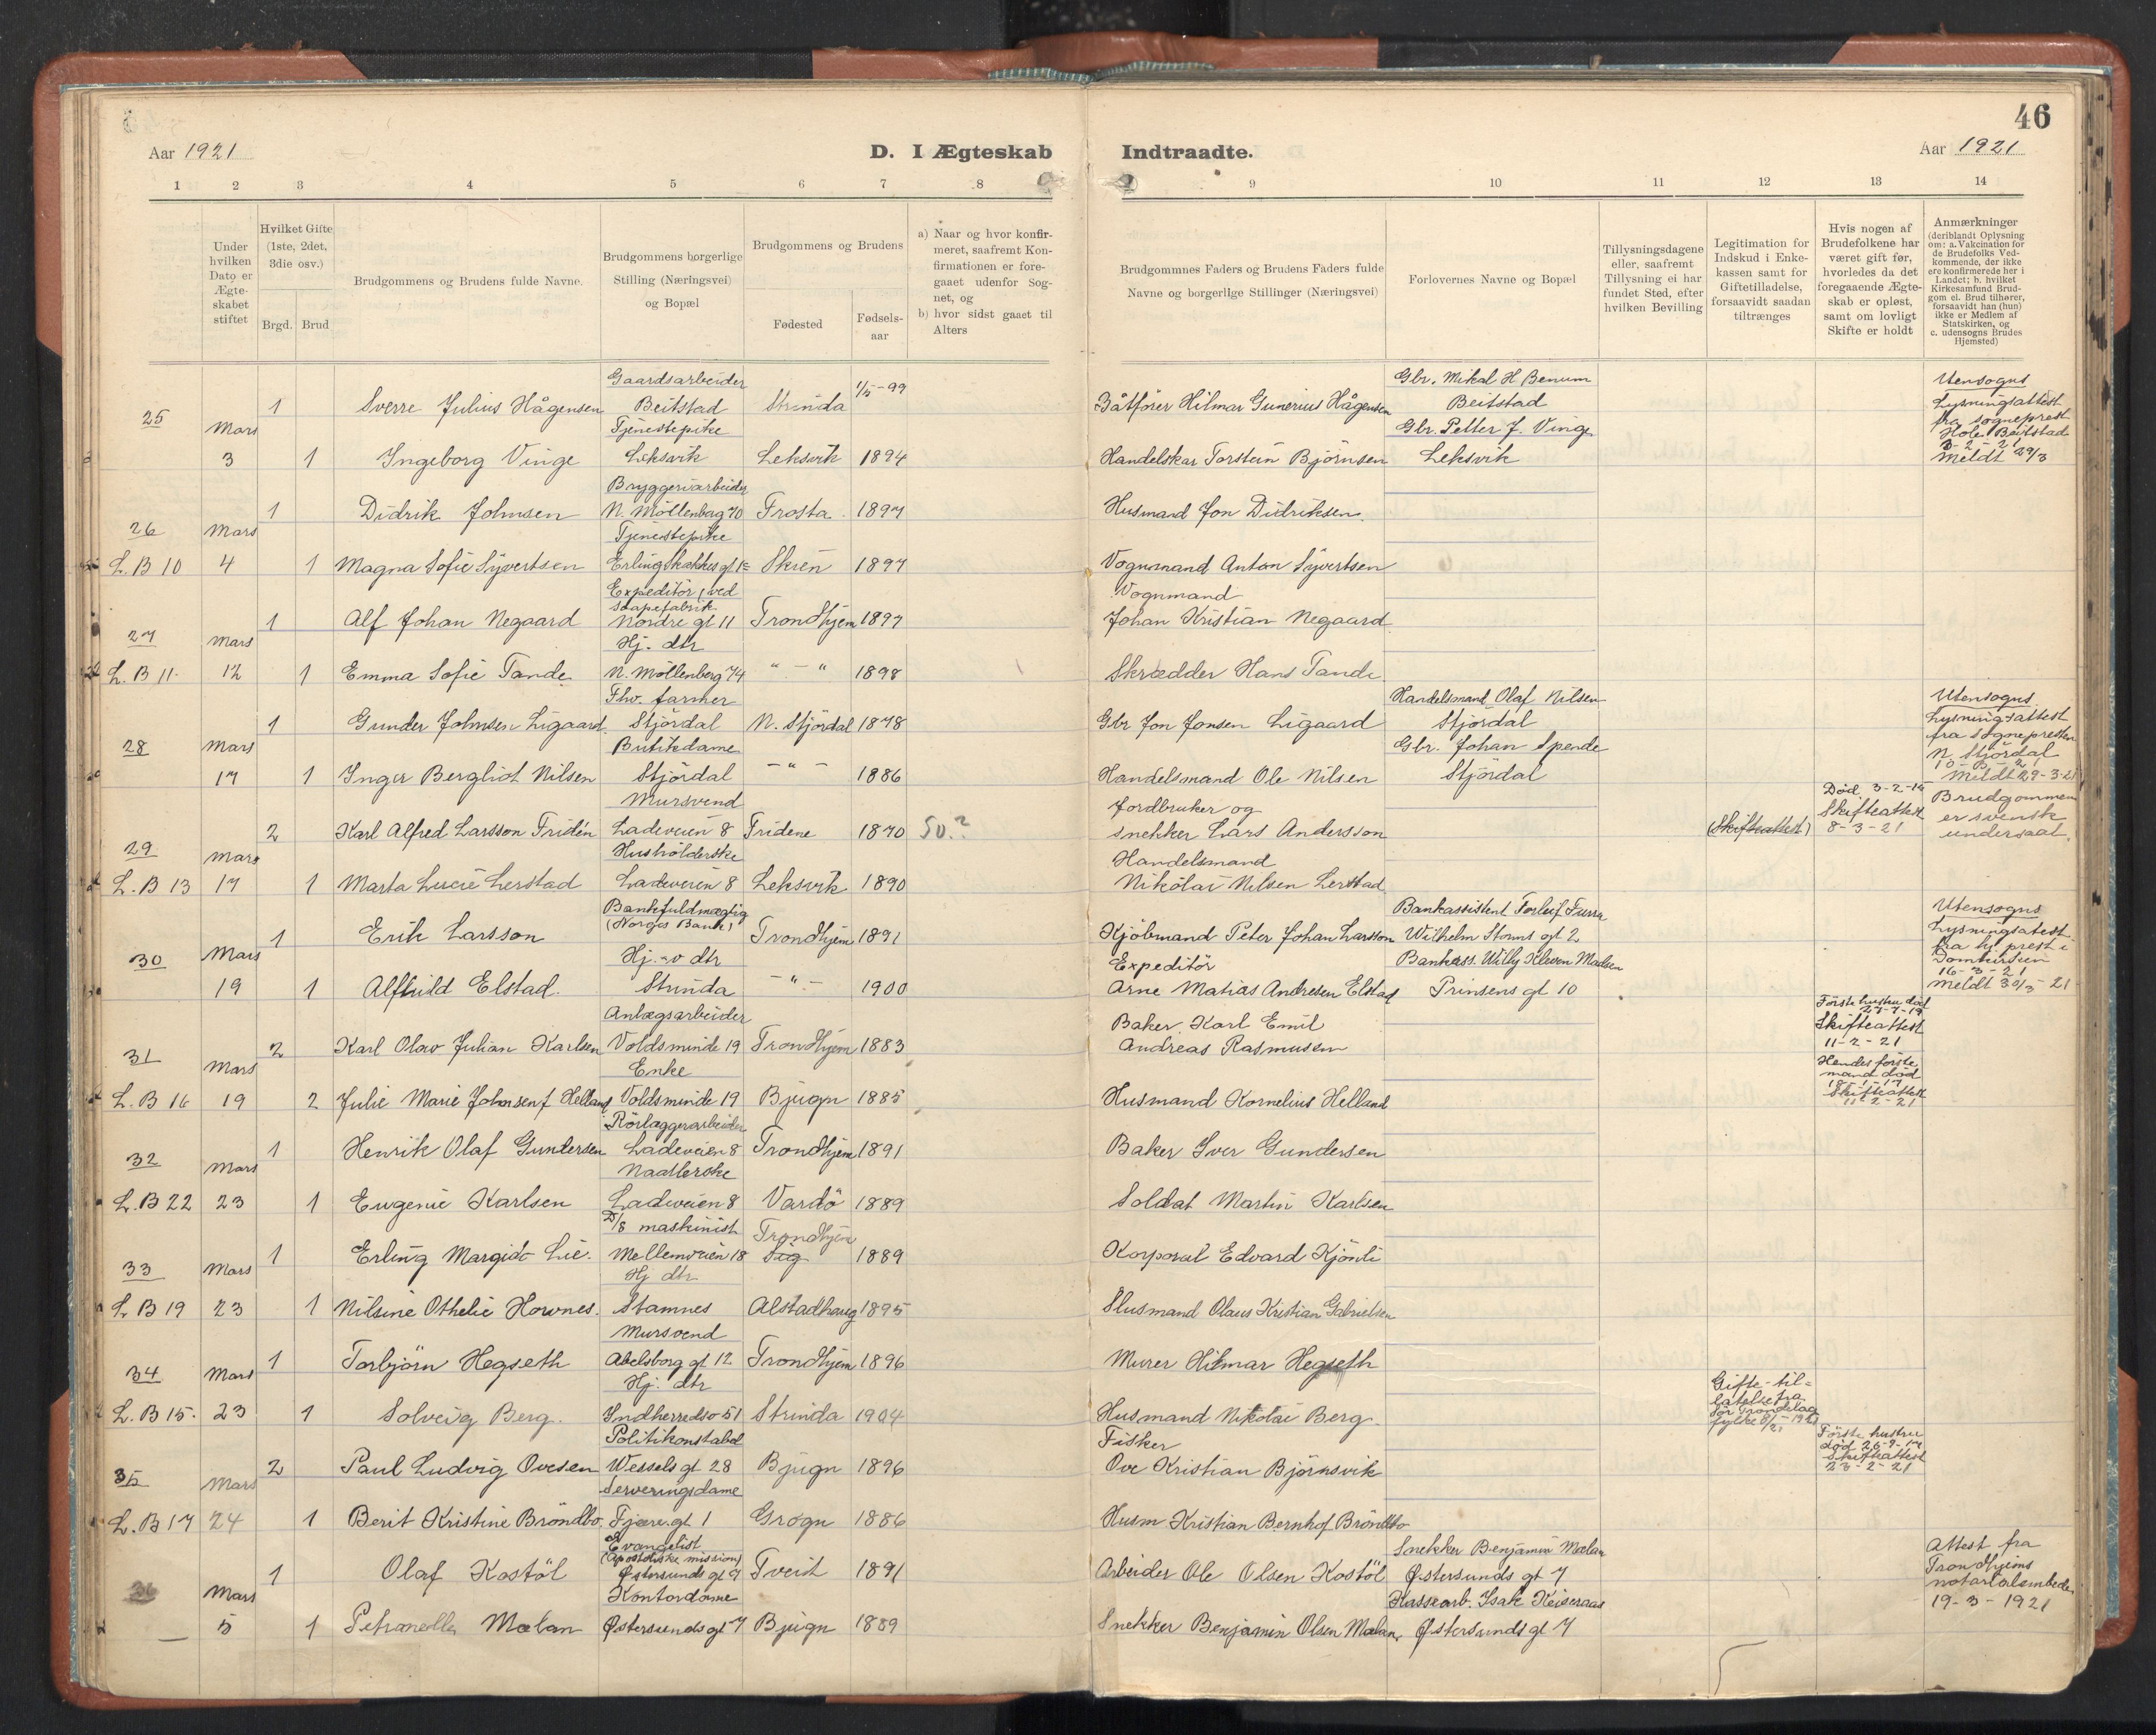 46
Aar 1921
D. I Ægteskab Indtraadte.
Aar 1921
1 2 3 4 5 6 7 8 9 10 11 12 13 14
Under hvilken Dato er Ægteskabet stiftet
Hvilket Gifte (1ste, 2det, 3die osv.)
Brgd. Brud
Brudgommens og Brudens fulde Navne.
Brudgommens borgerlige Stilling (Næringsvei) og Bopæl
Brudgommens og Brudens
Fødested
Fødsels-aar
a) Naar og hvor konfirmeret, saafremt Konfirmationen er foregaaet udenfor Sognet, og
b) hvor sidst gaaet til Alters
Brudgommnes Faders og Brudens Faders fulde Navne og borgerlige Stillinger (Næringsvei)
Forlovernes Navne og Bopæl
Tillysningsdagene eller, saafremt Tillysning ei har fundet Sted, efter hvilken Bevilling
Legitimation for Indskud i Enkekassen samt for Giftetilladelse, forsaavidt saadan tiltrænges
Hvis nogen af Brudefolkene har været gift før, hvorledes da det foregaaende Ægteskab er opløst, samt om lovligt Skifte er holdt
Anmærkninger (deriblandt Oplysning om: a. Vakcination for de Brudefolks Vedkommende, der ikke ere konfirmerede her i Landet; b. hvilket Kirkesamfund Brudgom el. Brud tilhører, forsaavidt han (hun) ikke er Medlem af Statskirken, og c. udensogns Brudes Hjemsted)
Gaardsarbeider Gbr. Mikal H Benum Utensogns
25 Mars 1 Sverre Julius Hågensen Beitstad Strinda 1/5-99 Båtfører Hilmar Gunerius Hågensen Beitstad Lysningsattest
Tjenestepike Gbr. Petter J. Vinge fra sogneprest
3 1 Ingeborg Vinge Leksvik Leksvik 1894 Handelskar Torstein Björnsen Leksvik Meldt 29/3
Bryggeriarbeider
26 Mars 1 Didrik Johnsen N. Möllenbag 70 Frosta 1897 Husmand Jon Didriksen.
Tjenestepike
L.B 10 4 1 Magna Sofie Syvertsen Erling Skakkes gt Skien 1897 Vognmand Anton Syvertsen
Expeditör ved saapefabrik Vognmand
27 Mars 1 Alf Johan Negaard Nordre gt 11 Trondhjem 1897 Johan Kristian Negaard
Hj. dtr
L.B 11. 12 1 Emma Sofie Tande N. Möllenberg 74 " - " 1898 Skrædder Hans Tande
Fhv. farmer Handelsmand Olaf Nilsen Utensogns
28 Mars 1 Gunder Johnsen Ligaard Stjördal N. Stjördal 1878 Gbr Jon Jonsen Ligaard Stjördal Lysningsattest
Butikdame Gbr. Johan Spende fra sognepresten N. Stjördal
17 1 Inger Bergliot Nilsen Stjördal - " - 1886 Handelsmand Ole Nilsen Stjördal Meldt 29-3-21
Mursvend Jordbruker og Död 3-2-
29 Mars 2 Karl Alfred Larsson Fridén Ladeveien 8 Fridene 1870 50.? snekker Lars Andersson (Skifteattest) Skifteattest 8-3-21 Brudgommen er svensk undersaat.
Husholderske Handelsmand
L.B 13 17 1 Marta Lucie Lerstad Ladeveien 8 Leksvik 1890 Nikolai Nilsen Lerstad
Bankfuldmægtig Bankassistent Torleif Utensogns
30 Mars 1 Erik Larsson (Norges Bank) Trondhjem 1891 Kjöbmand Peter Johan Larsson Wilhelm Storms gt 2 Lysningsatest fra
Hj-v dtr Expeditör Bankass. Willy Kleven Madsen Domkirken 16-3-21
19 1 Alfhild Elstad. Strinda - " - 1900 Arne Matias Andresen Elstad Prinsens gt 10 Meldt 30/3-21
Anlægsarbeider Baker. Karl Emil Förste hustru död
31 Mars 2 Karl Olav Julian Karlsen Voldsminde 19 Trondhjem 1883 Andreas Rasmusen Skifteattest 11-2-21
Enke Hendes förste mand död
L.B 16 19 2 Julie Marie Johansen f Helland Voldsminde 19 Bjugn 1885 Husmand Kornelius Helland Skifteattest 11-2-21
Rörlæggerarbeider
32 Mars 1 Henrik Olaf Gundersen Ladeveien 8 Trondhjem 1891 Baker Iver Gundersen
Naatlerske
L.B 22 23 1 Eugenie Karlsen Ladeveien 8 Vardö 1889 Soldat Martin Karlsen
D/S maskinist Trondhjem
33 Mars 1 Erling Margido Lie. Mellemveien 18 1889 Korporal Edvard Kjönli
Hj dtr
L.B 19 23 1 Nilsine Othelie Hovnes. Stamnes Alstadhaug 1895 Husmand Olaus Kristian Gabrielsen
Mursvend
34 Mars 1 Torbjörn Hegseth Abelsborg gt 12 Trondhjem 1896 Murer Hilmar Hegseth
Hj. dtr Gifte-til=
L.B 15. 23 1 Solveig Berg. Indherredsv 51 Strinda 1904 Husmand Nikolai Berg. latelse fra Sör Trondelag fylke
Politikonstabel Fisker Förste hustru
35 Mars 2 Paul Ludvig Ovesen Wessels gt 28 Bjugn 1896 Ove Kristian Björnsvik död 26-9-17 Skifteattest 23-2-21
Serveringsdame
L.B 17 24 1 Berit Kristine Bröndbo. Fjære.gt 1 Grogn 1886 Husm Kristian Bernhof Bröndbo
Evangelist (Apostoliske mission) Snekker Benjamin Mælan Attest fra
36 Mars 1 Olaf Kostöl Østersunds gt 7 Tveit 1891 Arbeider Ole Olsen Kostöl Østersunds gt 7 Trondhjems notarialembede
Kontordame Kassearb. Isak Keiseraas 19-3-1921
5 1 Petronelle Mælan Østersunds gt 7 Bjugn 1889 Snekker Benjamin Olsen Mælan, Østersunds gt 7